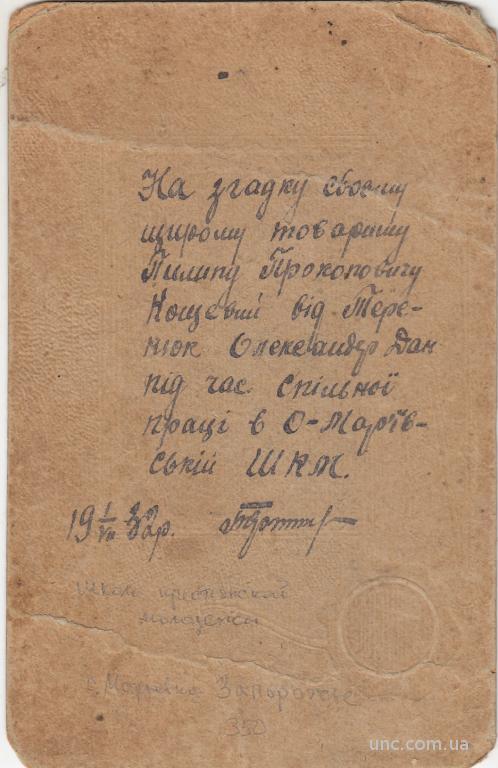 На згадку своєму
щирому товаришу
Пилипу Прокоповичу
Кощевий від Тере-
нюк Олександер Дан
під час спільної
праці в О-Мар'їв-
ській ШКМ.
19 1/VII 32р.
школа крестьянской
молодежи
с. Марьевка Запорожье
350
unc.com.ua